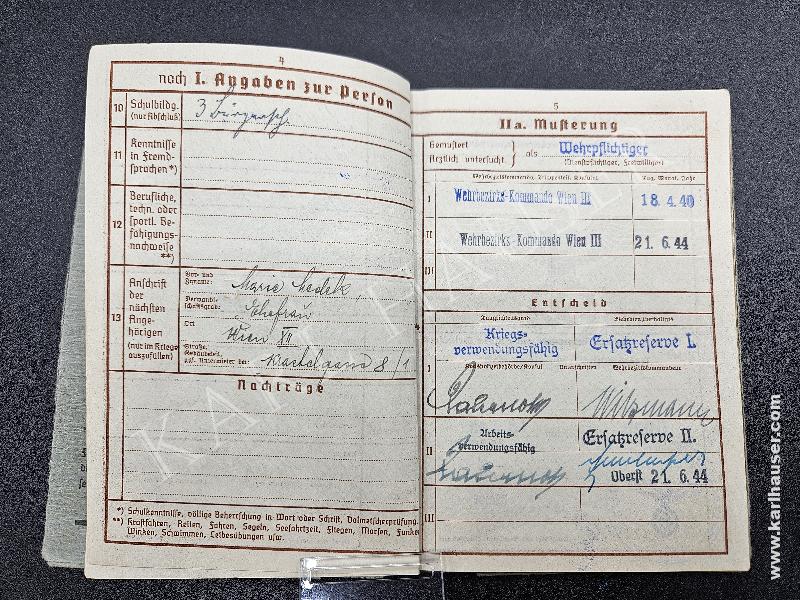 4
noch I. Angaben zur Person
10 Schulbildg.
(nur Abschluß)
3 Bürgersch.
11 Kenntnisse
in Fremd-
sprachen*)
12 Berufliche,
techn. oder
sportl. Be-
fähigungs-
nachweise
**)
13 Anschrift
der
nächsten
Ange-
hörigen
(nur im Kriege
auszufüllen)
Vor- und
Zuname:
Marie
Verwandt-
schaftsgrad:
Ehefrau
Ort
Wien XII
Straße,
8/1
Nachträge
*) Schulkenntnisse, völlige Beherrschung in Wort oder Schrift, Dolmetscherprüfung.
**) Kraftfahren, Reiten, Fahren, Segeln, Seefahrtzeit, Fliegen, Morsen, Funken
Winken, Schwimmen, Leibesübungen usw.
5
IIa. Musterung
Gemustert
ärztlich untersucht } als Wehrpflichtiger
(Dienstpflichtiger, Freiwilliger)
Tag, Monat, Jahr
I Wehrbezirks-Kommando Wien III 18.4.40
II Wehrbezirks-Kommando Wien III 21.6.44
III
Entscheid
Tauglichkeitsgrad
Kriegs-
verwendungsfähig
Ersatzreserve I.
I
Unterschriften
Wehrbezirkskommandeur
II Arbeits-
verwendungsfähig
Ersatzreserve II.
Oberst 21.6.44
III
KARL HAUSER
www.karlhauser.com